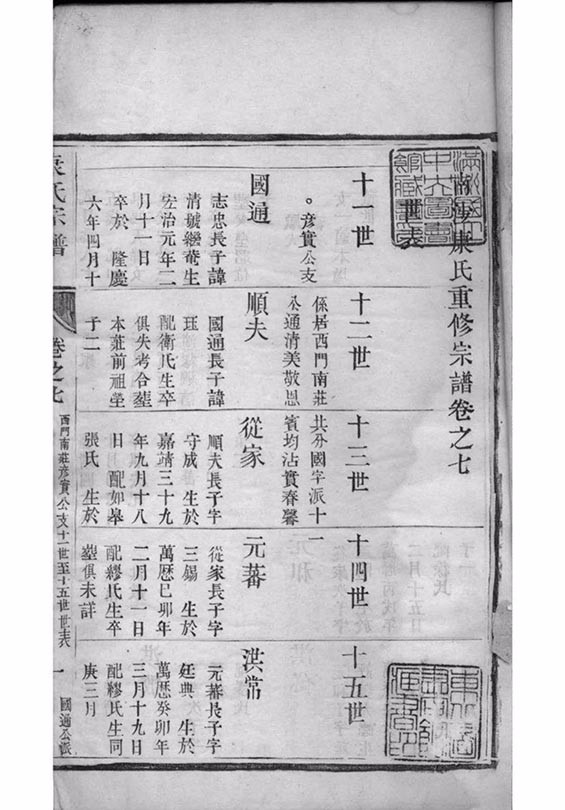 康氏重修宗譜卷之七
世表
十一世
十二世
十三世
十四世
十五世
彥實公支
係居西門南莊
共分國字派十一
公通清美敬恩
賓均沾實春馨
國通
志忠長子諱
清號巒菴生
宏治元年二
月十一日
卒於 隆慶
六年四月十
順夫
國通長子諱
珏
配衛氏生卒
俱失考合塟
本莊前祖塋
子二
從家
順夫長子字
守成 生於
嘉靖三十九
年九月十八
日 配如皋
張氏 生於
元蕃
從家長子字
三錫 生於
萬歷已卯年
二月十一日
配繆氏生卒
塟俱未詳
洪常
元蕃長子字
廷典 生於
萬歷癸卯年
三月十九日
配繆氏生同
庚三月
氏宗譜
卷之七
西門南莊彥實公支十一世至十五世世表
一
國通公派